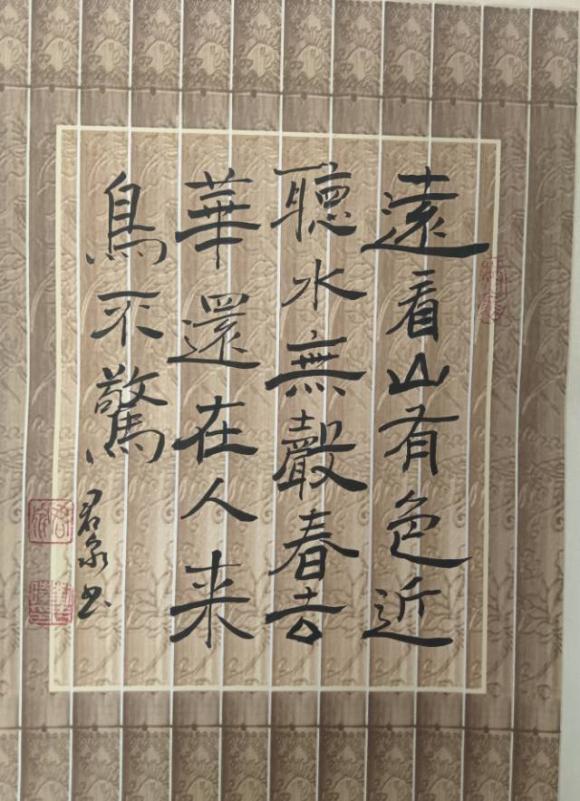 遠看山有色近
聽水無聲春去
華還在人来
鳥不驚
君泉书